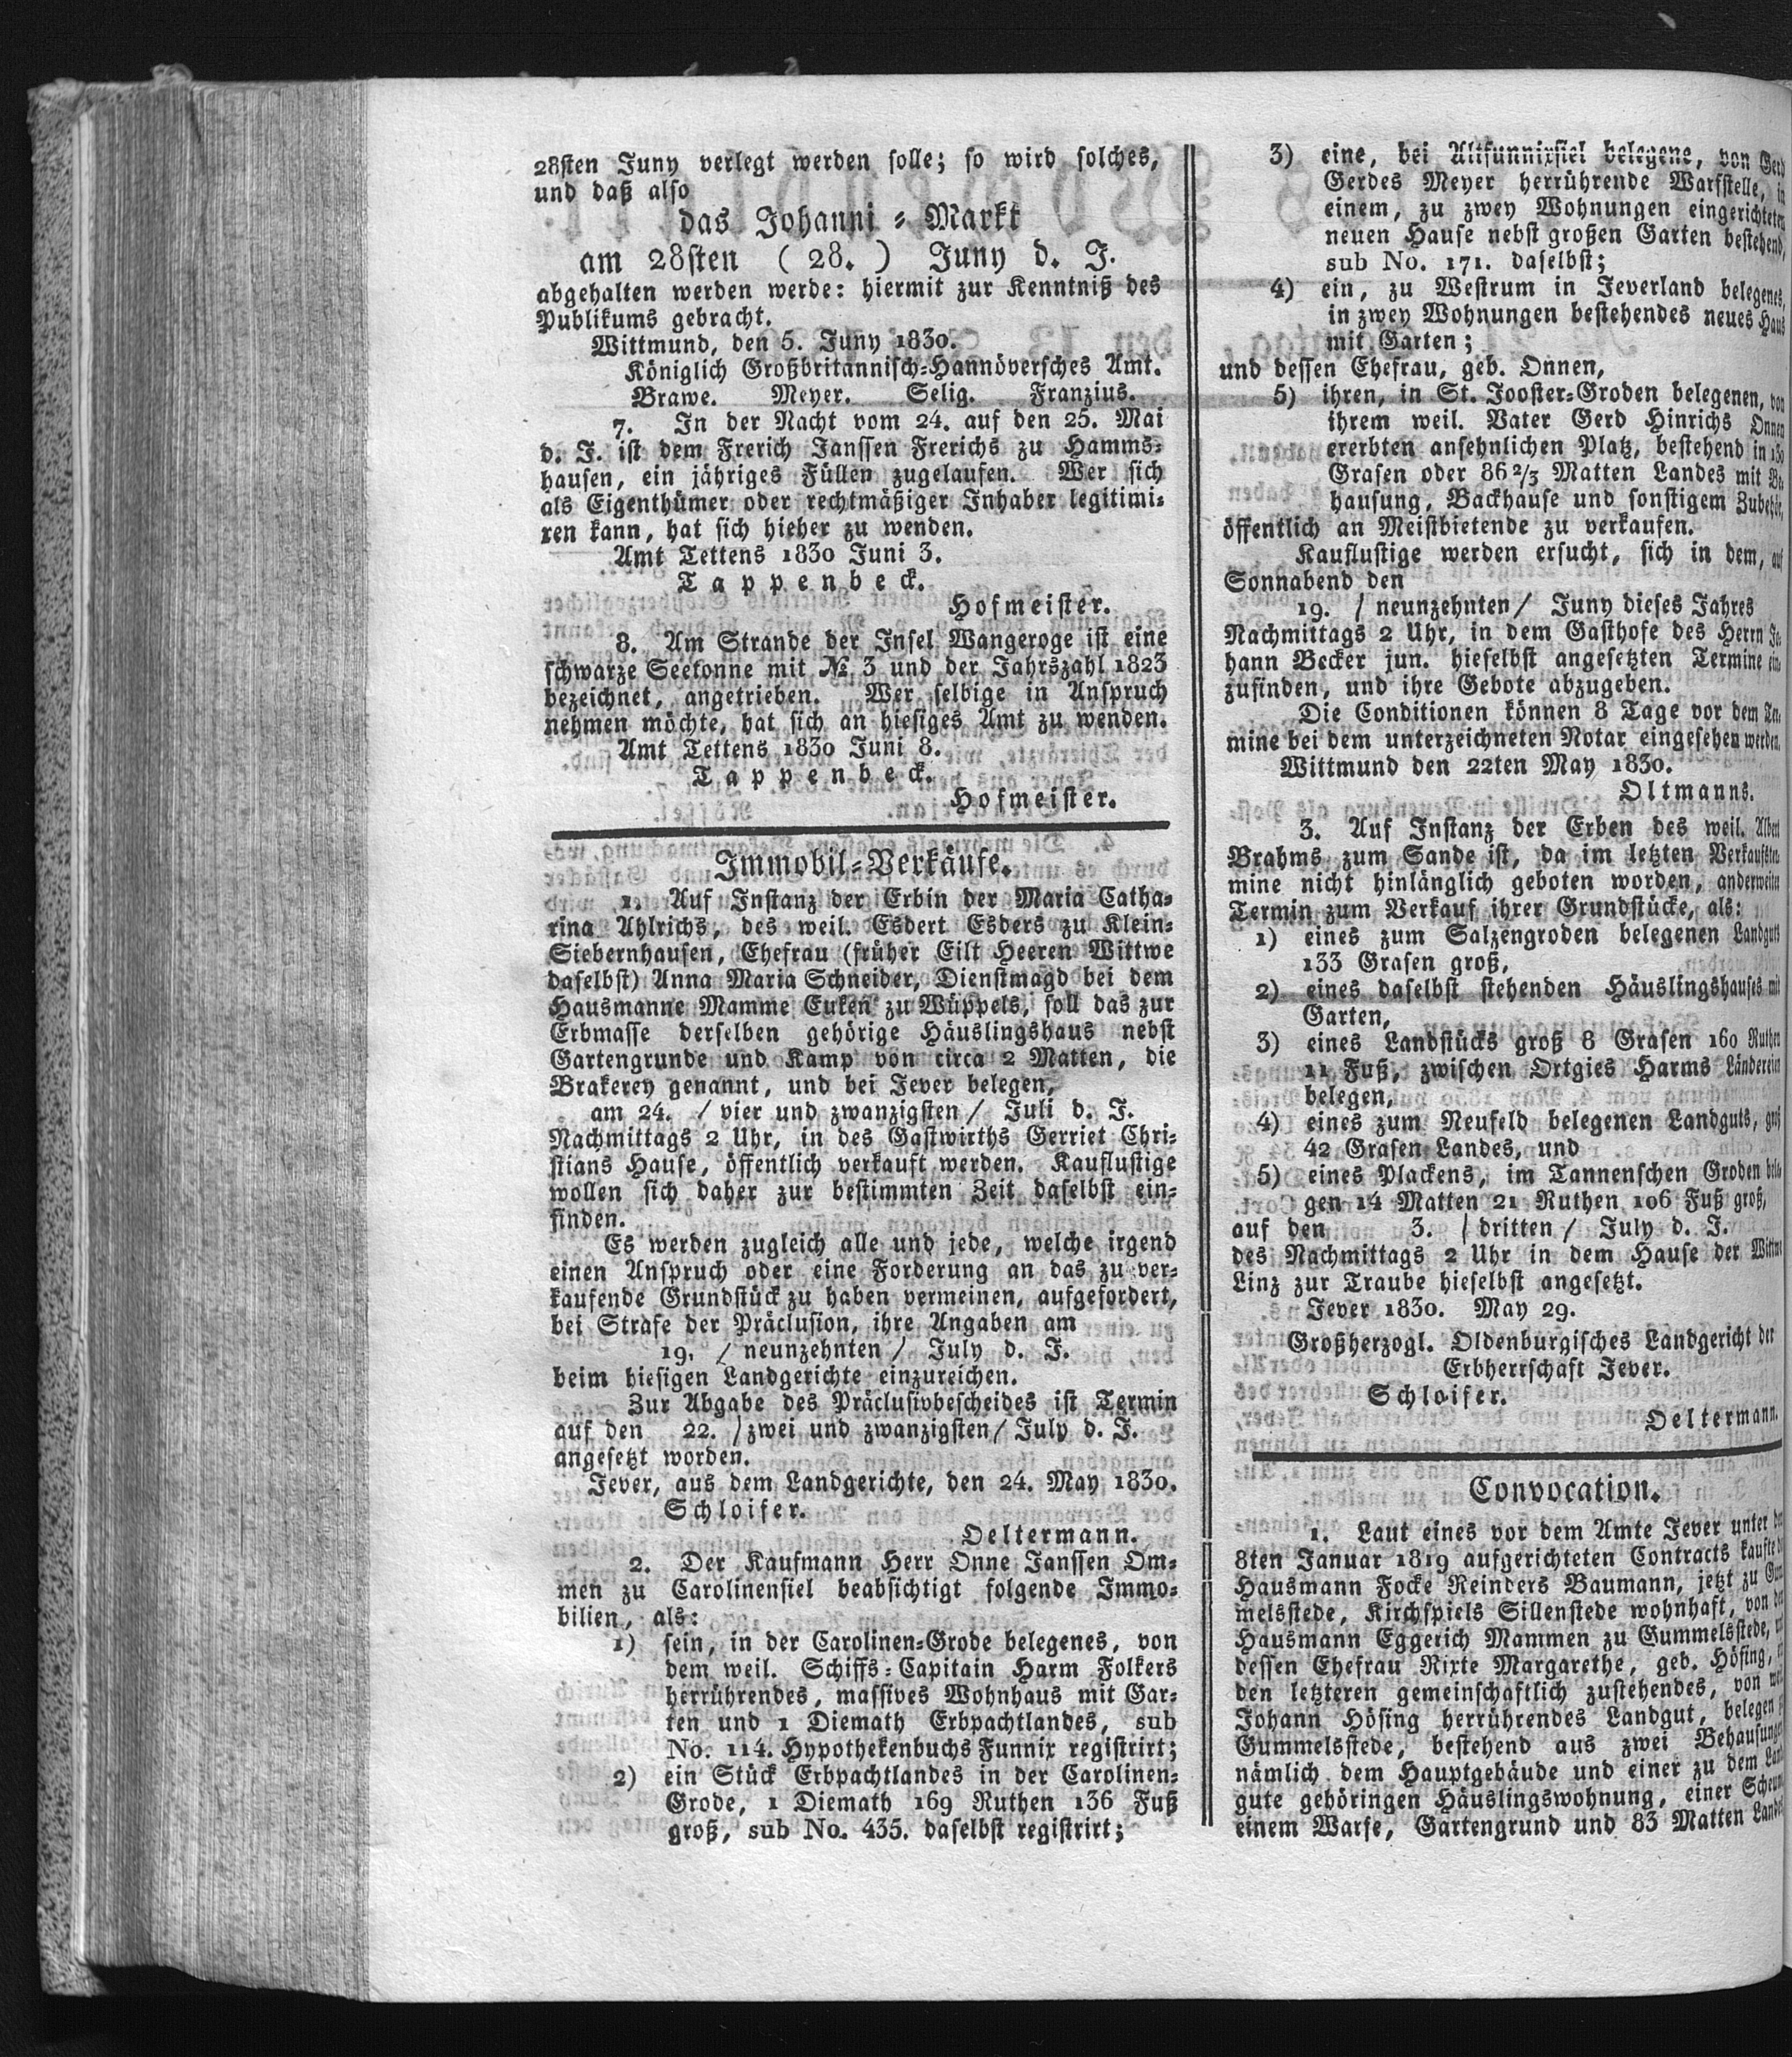 28sten Juny verlegt werden solle; so wird solches,
und daß also
das Johanni-Markt
am 28sten (28.) Juny d. J.
abgehalten werden werde: hiermit zur Kenntniß des
Publikums gebracht.
Wittmund, den 5. Juny 1830.
Königlich Großbritannisch-Hannöversches Amt.
Brawe. Meyer. Selig. Franzius.
7. In der Nacht vom 24. auf den 25. Mai
d. J. ist dem Frerich Janssen Frerichs zu Hamms-
hausen, ein jähriges Füllen zugelaufen. Wer sich
als Eigenthümer oder rechtmäßiger Inhaber legitimi-
ren kann, hat sich hieher zu wenden.
Amt Tettens 1830 Juni 3.
Tappenbeck.
Hofmeister.
8. Am Strande der Insel Wangeroge ist eine
schwarze Seetonne mit № 3 und der Jahrszahl 1823
bezeichnet, angetrieben. Wer selbige in Anspruch
nehmen möchte, hat sich an hiesiges Amt zu wenden.
Amt Tettens 1830 Juni 8.
Tappenbeck.
Hofmeister.
Immobil-Verkäufe.
1. Auf Instanz der Erbin der Maria Catha-
rina Ahlrichs, des weil. Esdert Esders zu Klein-
Siebernhausen, Ehefrau (früher Eilt Heeren Wittwe
daselbst) Anna Maria Schneider, Dienstmagd bei dem
Hausmanne Mamme Euken zu Wüppels, soll das zur
Erbmasse derselben gehörige Häuslingshaus nebst
Gartengrunde und Kamp von circa 2 Matten, die
Brakerey genannt, und bei Jever belegen,
am 24. / vier und zwanzigsten / Juli d. J.
Nachmittags 2 Uhr, in des Gastwirths Gerriet Chri-
stians Hause, öffentlich verkauft werden. Kauflustige
wollen sich daher zur bestimmten Zeit daselbst ein-
finden.
Es werden zugleich alle und jede, welche irgend
einen Anspruch oder eine Forderung an das zu ver-
kaufende Grundstück zu haben vermeinen, aufgefordert,
bei Strafe der Präclusion, ihre Angaben am
19. / neunzehnten / July d. J.
beim hiesigen Landgerichte einzureichen.
Zur Abgabe des Präclusivbescheides ist Termin
auf den 22. / zwei und zwanzigsten / July d. J.
angesetzt worden.
Jever, aus dem Landgerichte, den 24. May 1830.
Schloifer.
Oeltermann.
2. Der Kaufmann Herr Onne Janssen Om-
men zu Carolinensiel beabsichtigt folgende Immo-
bilien, als:
1) sein, in der Carolinen-Grode belegenes, von
dem weil. Schiffs-Capitain Harm Folkers
herrührendes, massives Wohnhaus mit Gar-
ten und 1 Diemath Erbpachtlandes, sub
No. 114. Hypothekenbuchs Funnix registrirt;
2) ein Stück Erbpachtlandes in der Carolinen-
Grode, 1 Diemath 169 Ruthen 136 Fuß
groß, sub No. 435. daselbst registrirt;
3) eine, bei Altfunnixsiel belegene, von Gerd
Gerdes Meyer herrührende Warfstelle, in
einem, zu zwey Wohnungen eingerichteten
neuen Hause nebst großen Garten bestehend,
sub No. 171. daselbst;
4) ein, zu Westrum in Jeverland belegenes,
in zwey Wohnungen bestehendes neues Haus
mit Garten;
und dessen Ehefrau, geb. Onnen,
5) ihren, in St. Jooster-Groden belegenen, von
ihrem weil. Vater Gerd Hinrichs Onnen
ererbten ansehnlichen Platz, bestehend in
Grasen oder 86 2/3 Matten Landes mit Be-
hausung, Backhause und sonstigem Zubehör,
öffentlich an Meistbietende zu verkaufen.
Kauflustige werden ersucht, sich in dem, auf
Sonnabend den
19. / neunzehnten / Juny dieses Jahres
Nachmittags 2 Uhr, in dem Gasthofe des Herrn Jo-
hann Becker jun. hieselbst angesetzten Termine ein-
zufinden, und ihre Gebote abzugeben.
Die Conditionen können 8 Tage vor dem Ter-
mine bei dem unterzeichneten Notar eingesehen werden.
Wittmund den 22ten May 1830.
Oltmanns.
3. Auf Instanz der Erben des weil. Albert
Brahms zum Sande ist, da im letzten Verkaufster-
mine nicht hinlänglich geboten worden, anderweiter
Termin zum Verkauf ihrer Grundstücke, als:
1) eines zum Salzengroden belegenen Landguts
133 Grasen groß,
2) eines daselbst stehenden Häuslingshauses mit
Garten,
3) eines Landstücks groß 8 Grasen 160 Ruthen
11 Fuß, zwischen Ortgies Harms Ländereien
belegen,
4) eines zum Neufeld belegenen Landguts, groß
42 Grasen Landes, und
5) eines Plackens, im Tannenschen Groden bele-
gen 14 Matten 21 Ruthen 106 Fuß groß,
auf den 3. / dritten / July d. J.
des Nachmittags 2 Uhr in dem Hause der Wittwe
Linz zur Traube hieselbst angesetzt.
Jever 1830. May 29.
Großherzogl. Oldenburgisches Landgericht der
Erbherrschaft Jever.
Schloifer.
Oeltermann.
Convocation.
1. Laut eines vor dem Amte Jever unter
8ten Januar 1819 aufgerichteten Contracts kaufte
Hausmann Focke Reinders Baumann, jetzt zu Gum-
melsstede, Kirchspiels Sillenstede wohnhaft, von
Hausmann Eggerich Mammen zu Gummelsstede,
dessen Ehefrau Rixte Margarethe, geb. Hösing,
den letzteren gemeinschaftlich zustehendes, von
Johann Hösing herrührendes Landgut, belegen
Gummelsstede, bestehend aus zwei Behausungen
nämlich dem Hauptgebäude und einer zu dem Land-
gute gehöringen Häuslingswohnung, einer Scheune
einem Warfe, Gartengrund und 83 Matten Landes